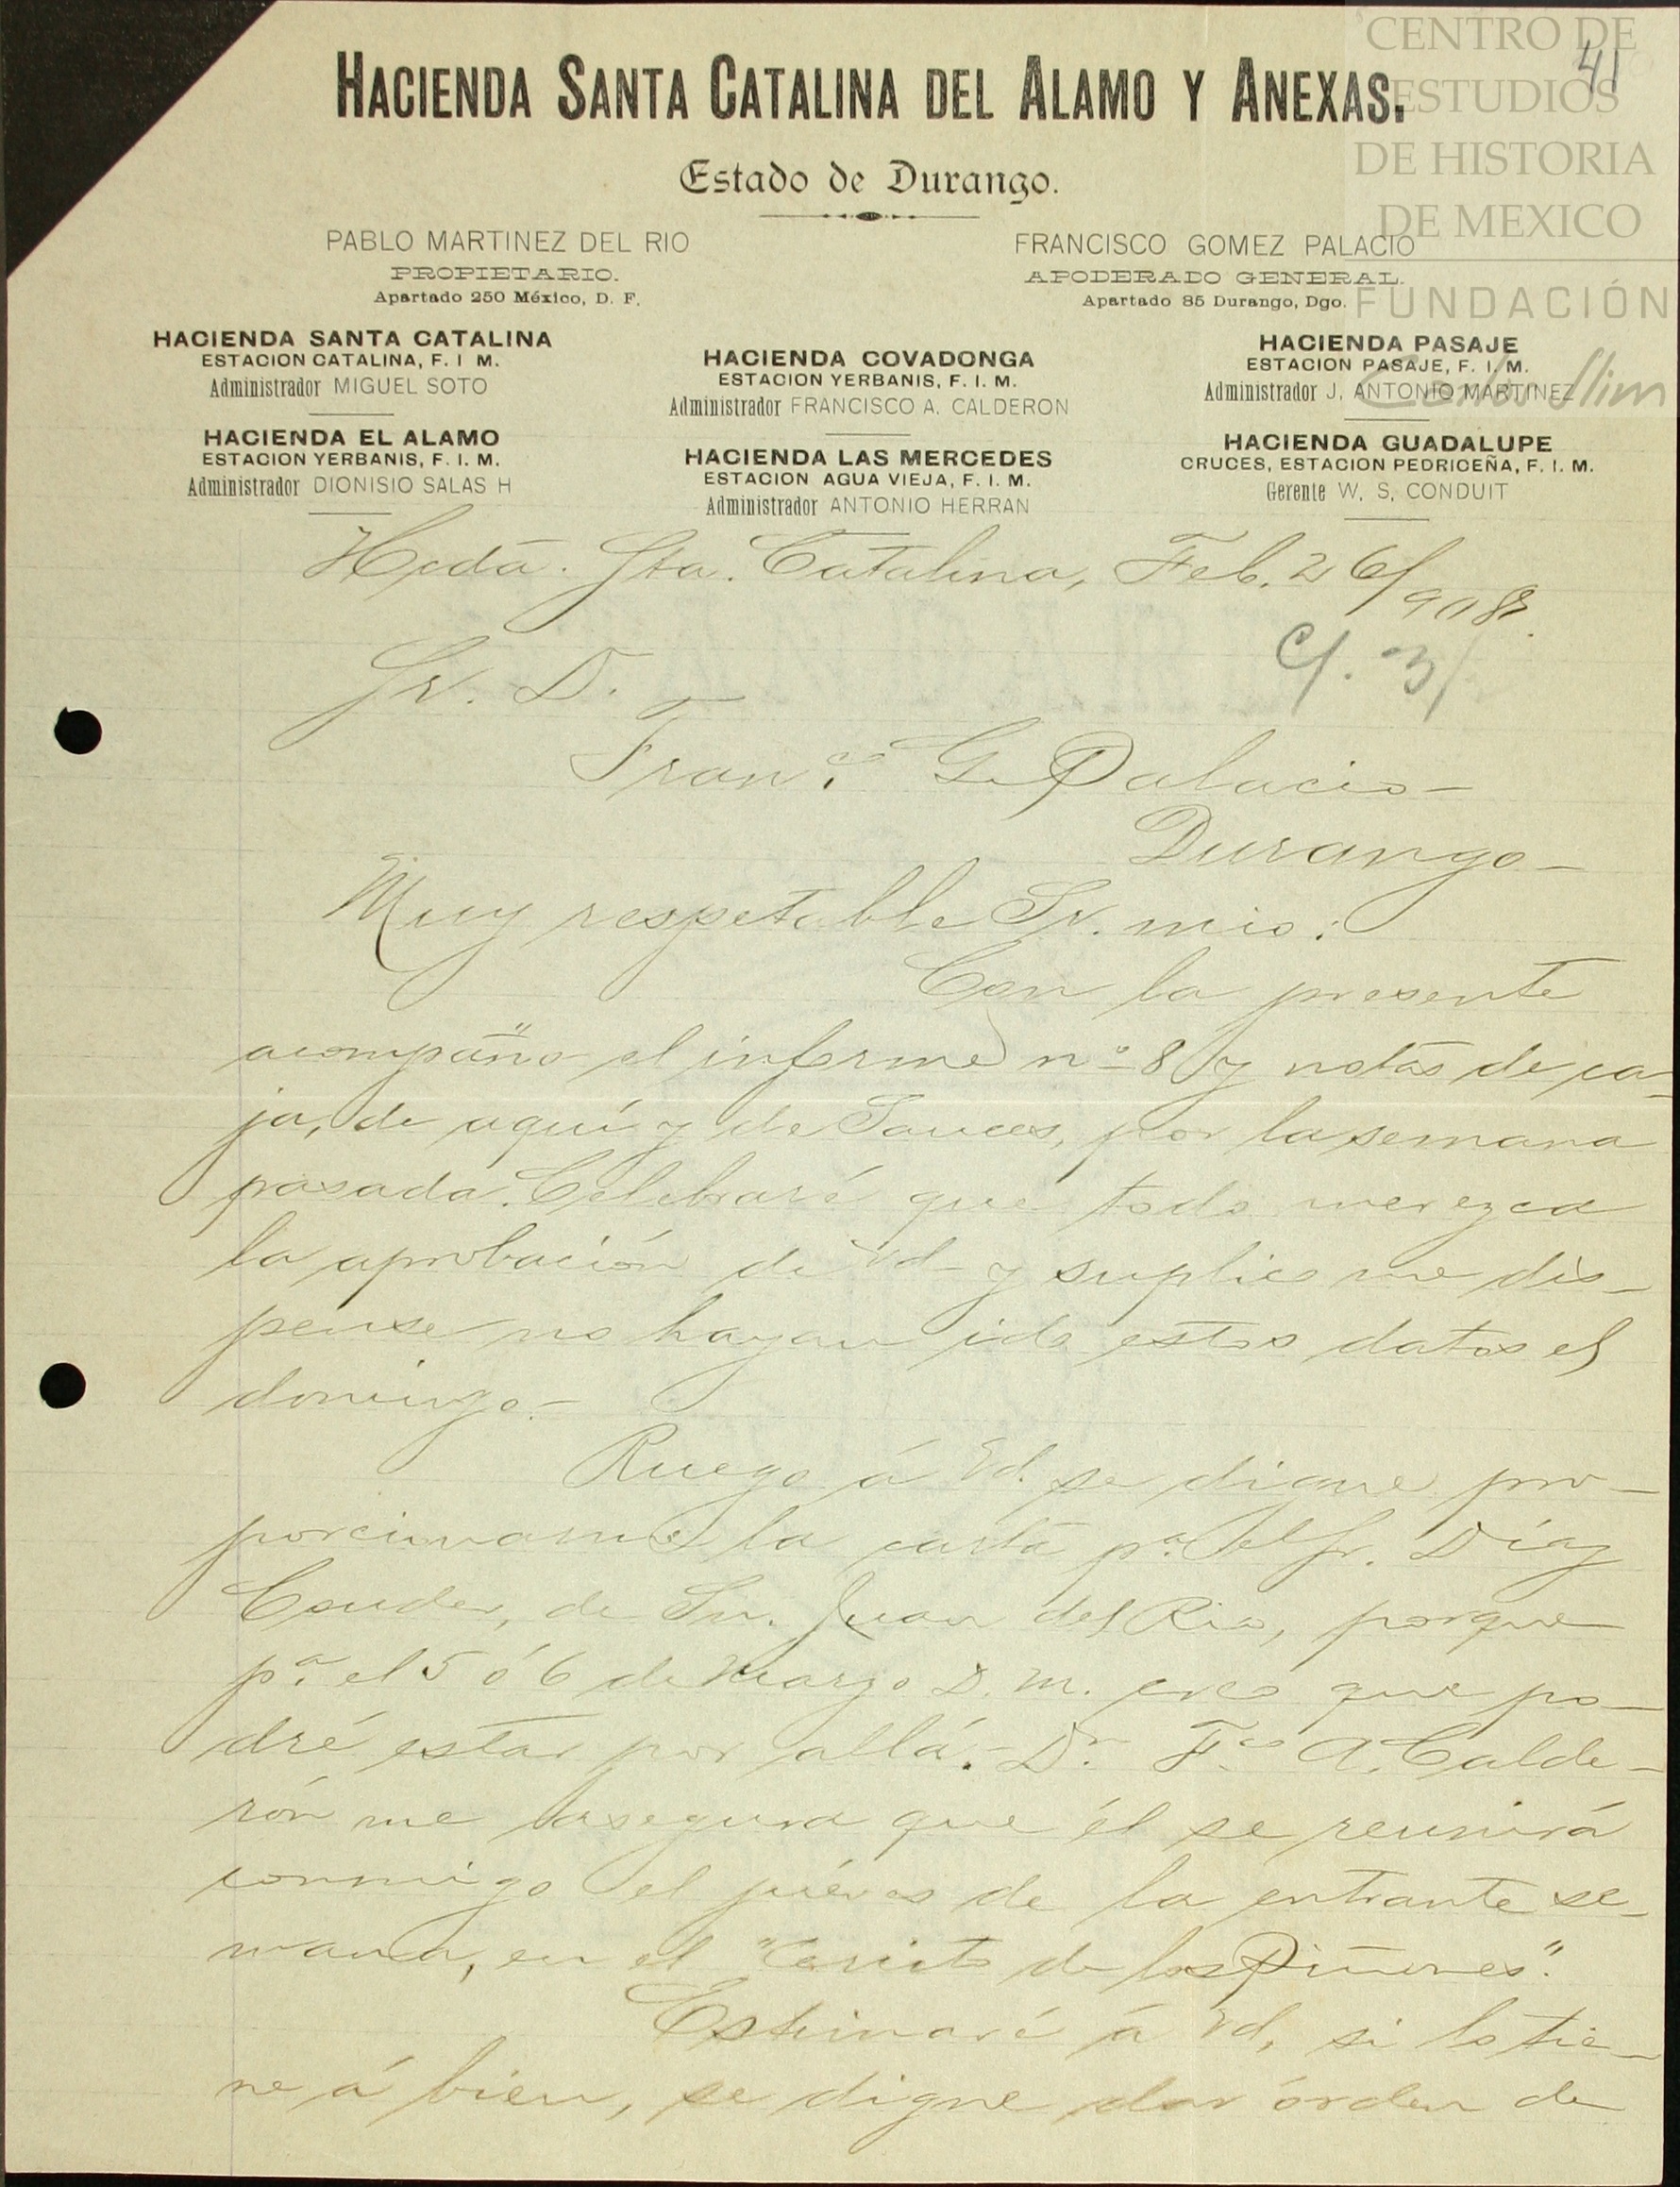 CENTRO DE
ESTUDIOS
DE HISTORIA
DE MEXICO
FUNDACIÓN
Carlos Slim
41
HACIENDA SANTA CATALINA DEL ALAMO Y ANEXAS.
Estado de Durango.
PABLO MARTINEZ DEL RIO
PROPIETARIO.
Apartado 250 México, D. F.
FRANCISCO GOMEZ PALACIO
APODERADO GENERAL.
Apartado 85 Durango, Dgo.
HACIENDA SANTA CATALINA
ESTACION CATALINA, F. I M.
Administrador MIGUEL SOTO
HACIENDA EL ALAMO
ESTACION YERBANIS, F. I. M.
Administrador DIONISIO SALAS H
HACIENDA COVADONGA
ESTACION YERBANIS, F. I. M.
Administrador FRANCISCO A. CALDERON
HACIENDA LAS MERCEDES
ESTACION AGUA VIEJA, F. I. M.
Administrador ANTONIO HERRAN
HACIENDA PASAJE
ESTACION PASAJE, F. I. M.
Administrador J. ANTONIO MARTINEZ
HACIENDA GUADALUPE
CRUCES, ESTACION PEDRICEÑA, F. I. M.
Gerente W. S. CONDUIT
Hcda. Sta. Catalina, Feb. 26/908.
C/. 3/
Sr. D.
Franco. G. Palacio-
Durango-
Muy respetable Sr. mio:
Con la presente
acompaño el informe no. 8 y notas de ca-
ja, de aquí y de Sauces, por la semana
pasada. Celebraré que todo merezca
la aprobación de Vd- y suplico me dis-
pense no hayan ido estos datos el
domingo.-
Ruego á Vd. se digne pro-
porcionarme la carta pa. el Sr. Díaz
Couder, de Sn. Juan del Rio, porque
pa. el 5 ó 6 de Marzo D. m. creo que po-
dré estar por allá.- Dn. Fco. A. Calde-
rón me asegura que él se reunirá
conmigo el juéves de la entrante se-
mana, en el "Cerrito de los Piñones".
Estimaré á Vd, si lo tie-
ne á bien, se digne dar órden de